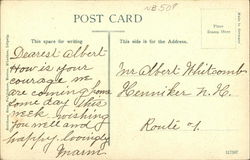 NB 508
POST CARD
Place Stamp Here
This space for writing
This side is for the Address.
Dearest Albert
How is your
courage we
are coming home
some day this
week wishing
you well and
happy lovingly
Mr Albert Whitcomb
Henniker N. H.
Route #1.